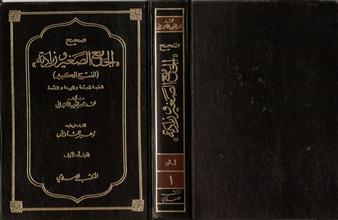 صحيح
الجامع الصغير وزيادته
(الفتح الكبير)
تأليف
محمد ناصر الدين الألباني
أشرف على طبعه
زهير الشاويش
المجلد الأول
المكتب الإسلامي
صحيح
الجامع الصغير وزيادته
١
المكتب
الإسلامي